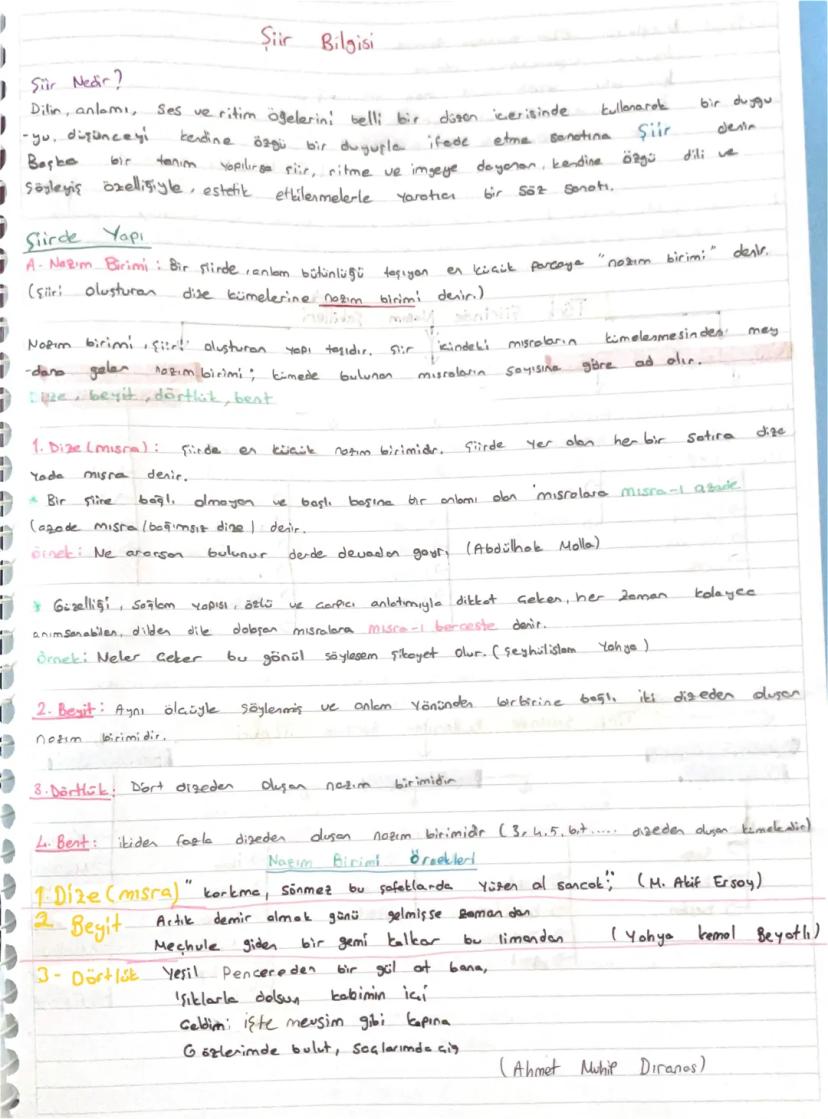 Şiir Bilgisi
Şiir Nedir?
Dilin, anlamı, ses ve ritim öğelerini belli bir düzen içerisinde kullanarak bir duygu
-yu, düşünceyi kendine özgü bir duyuşla ifade etme sanatına Şiir denir
Başka bir tanım yapılırsa şiir, ritme ve imgeye dayanan, kendine özgü dili ve
Söyleyiş özelliğiyle, estetik etkilenmelerle yaratıcı bir söz sanatı.
Şiirde Yapı
A- Nazım Birimi: Bir şiirde, anlam bütünlüğü taşıyan en küçük parçaya "nazım birimi" denir.
(Şiiri oluşturan dize kümelerine nazım birimi denir.)
Nazım birimi, şiiri oluşturan yapı taşıdır. Şiir içindeki mısraların kümelenmesinden mey
-dana gelen nazım birimi; kümede bulunan mısraların sayısına göre ad alır.
Dize, beyit, dörtlük, bent
1. Dize (mısra): Şiirde en küçük nazım birimidir. Şiirde yer alan her bir satıra dize
Yada mısra denir.
* Bir şiire bağlı olmayan ve başlı başına bir anlamı olan mısralara mısra-ı azade
(azade mısra / bağımsız dize) denir.
örnek: Ne ararsan bulunur derde devadan gayrı (Abdülhak Molla)
* Güzelliği, sağlam yapısı, özlü ve çarpıcı anlatımıyla dikkat çeken, her zaman kolayca
anımsanabilen, dilden dile dolaşan mısralara mısra-ı berceste denir.
Örnek: Neler çeker bu gönül söylesem şikayet olur. (Şeyhülislam Yahya)
2. Beyit: Aynı ölçüyle söylenmiş ve anlam yönünden birbirine bağlı iki dizeden oluşan
nazım birimidir.
3. Dörtlük: Dört dizeden oluşan nazım birimidir
4. Bent: ikiden fazla dizeden oluşan nazım birimidir (3, 4, 5, 6, 7 ..... dizeden oluşan kümelerdir)
Nazım Birimi Örnekleri
1. Dize (mısra) "korkma, sönmez bu şafaklarda yüzen al sancak;" (M. Akif Ersoy)
2 Beyit Artık demir almak günü gelmişse zamandan
Meçhule giden bir gemi kalkar bu limandan (Yahya kemal Beyatlı)
3- Dörtlük Yeşil Pencereden bir gül at bana,
Işıklarla dolsun kalbimin içi
Geldim işte mevsim gibi kapına
Gözlerimde bulut, saçlarımda çiğ
(Ahmet Muhip Dıranas)